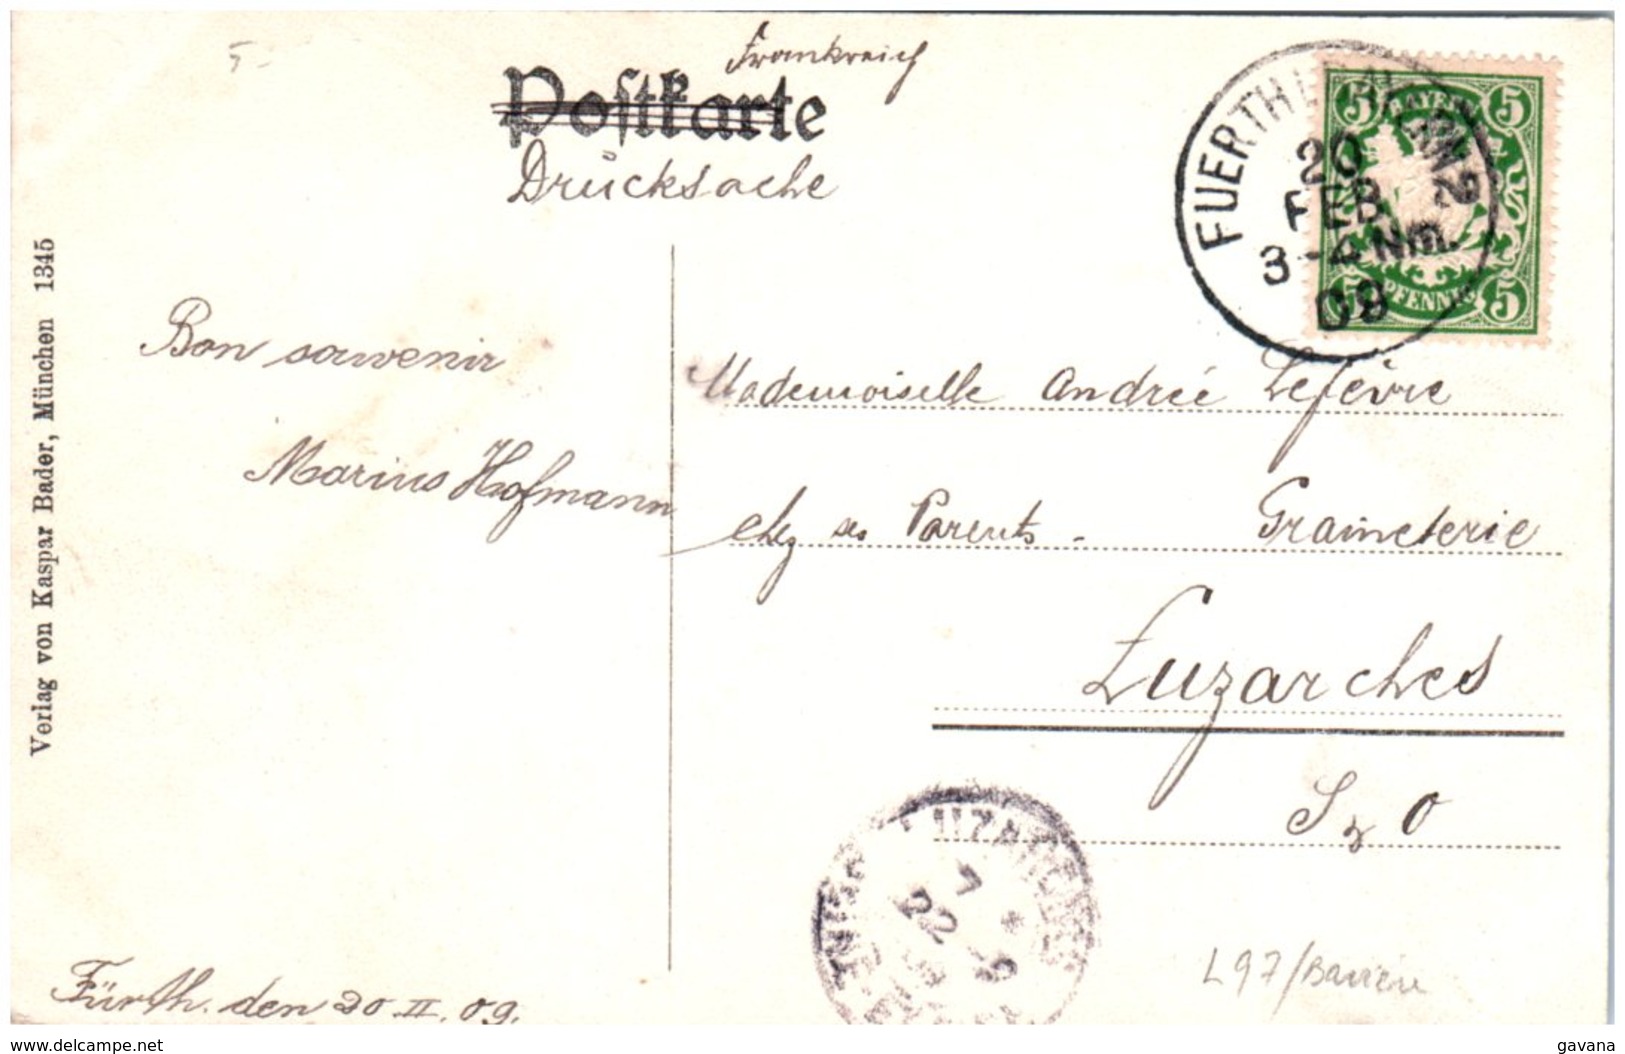 5-
Frankreich
Postkarte
Drucksache
FUERTH BAYERN 2
20
FEB
3-4 Nm.
09
5 BAYERN 5
5 PFENNIG 5
Verlag von Kaspar Bader, München 1345
Bon souvenir
Marius Hofmann
Fürth. den 20. II. 09.
Mademoiselle Andrée Lefèvre
chez ses Parents - Graineterie
Luzarches
S & O
LUZARCHES
7 *
22 - 2
09
SEINE-ET-OISE
L97/Bavière
delcampe.net
gavana